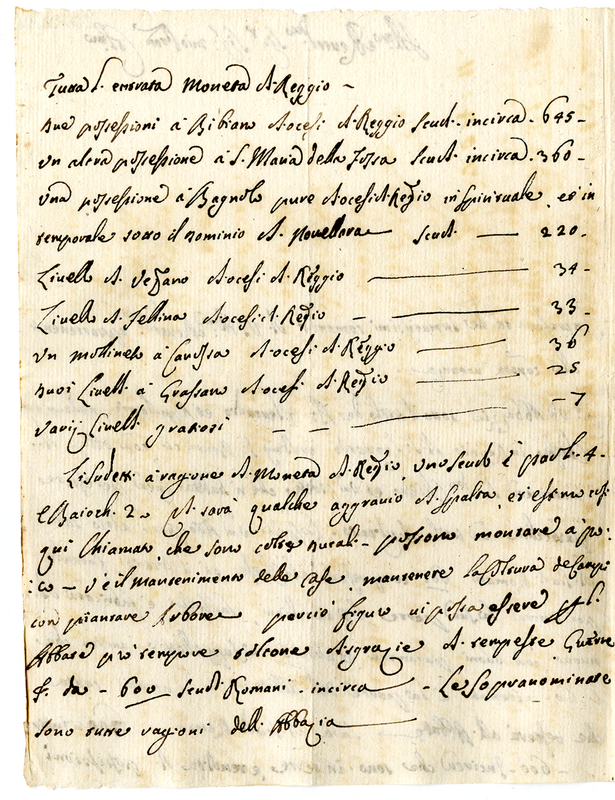 Tutta l'entrata Moneta di Reggio -
due possessioni à Bibiano diocesi di Reggio scudi incirca - 645 -
un altra possessione à S. Maria della Fossa scudi incirca - 360 -
una possessione à Bagnolo pure diocesi di Regio in spirituale, et in
temporale sotto il dominio di Novellara scudi — 220 -
Livelli di Vezano diocesi di Reggio — 34 -
Livelli di Fellina diocesi di Regio — 33 -
un molineto à Canossa diocesi di Reggio — 36
nuovi Livelli à Grassano diocesi di Regio — 25
varij Livelli - - — - 7
Li sudetti à ragione di Moneta di Regio, uno scudo è paoli - 4 -
e Baiochi 2 - vi sarà qualche aggravio di
qui chiamato, che sono colte ducali - possono montare à
- v'è il mantenimento delle case, mantenere la coltura de Campi
con piantare Arbore perciò figuro vi possa essere
Abbate più tempore disgrazie di tempeste Guerre
da - 600 scudi Romani - incirca - Le sopranominate
sono tutte ragioni dell'Abbazia